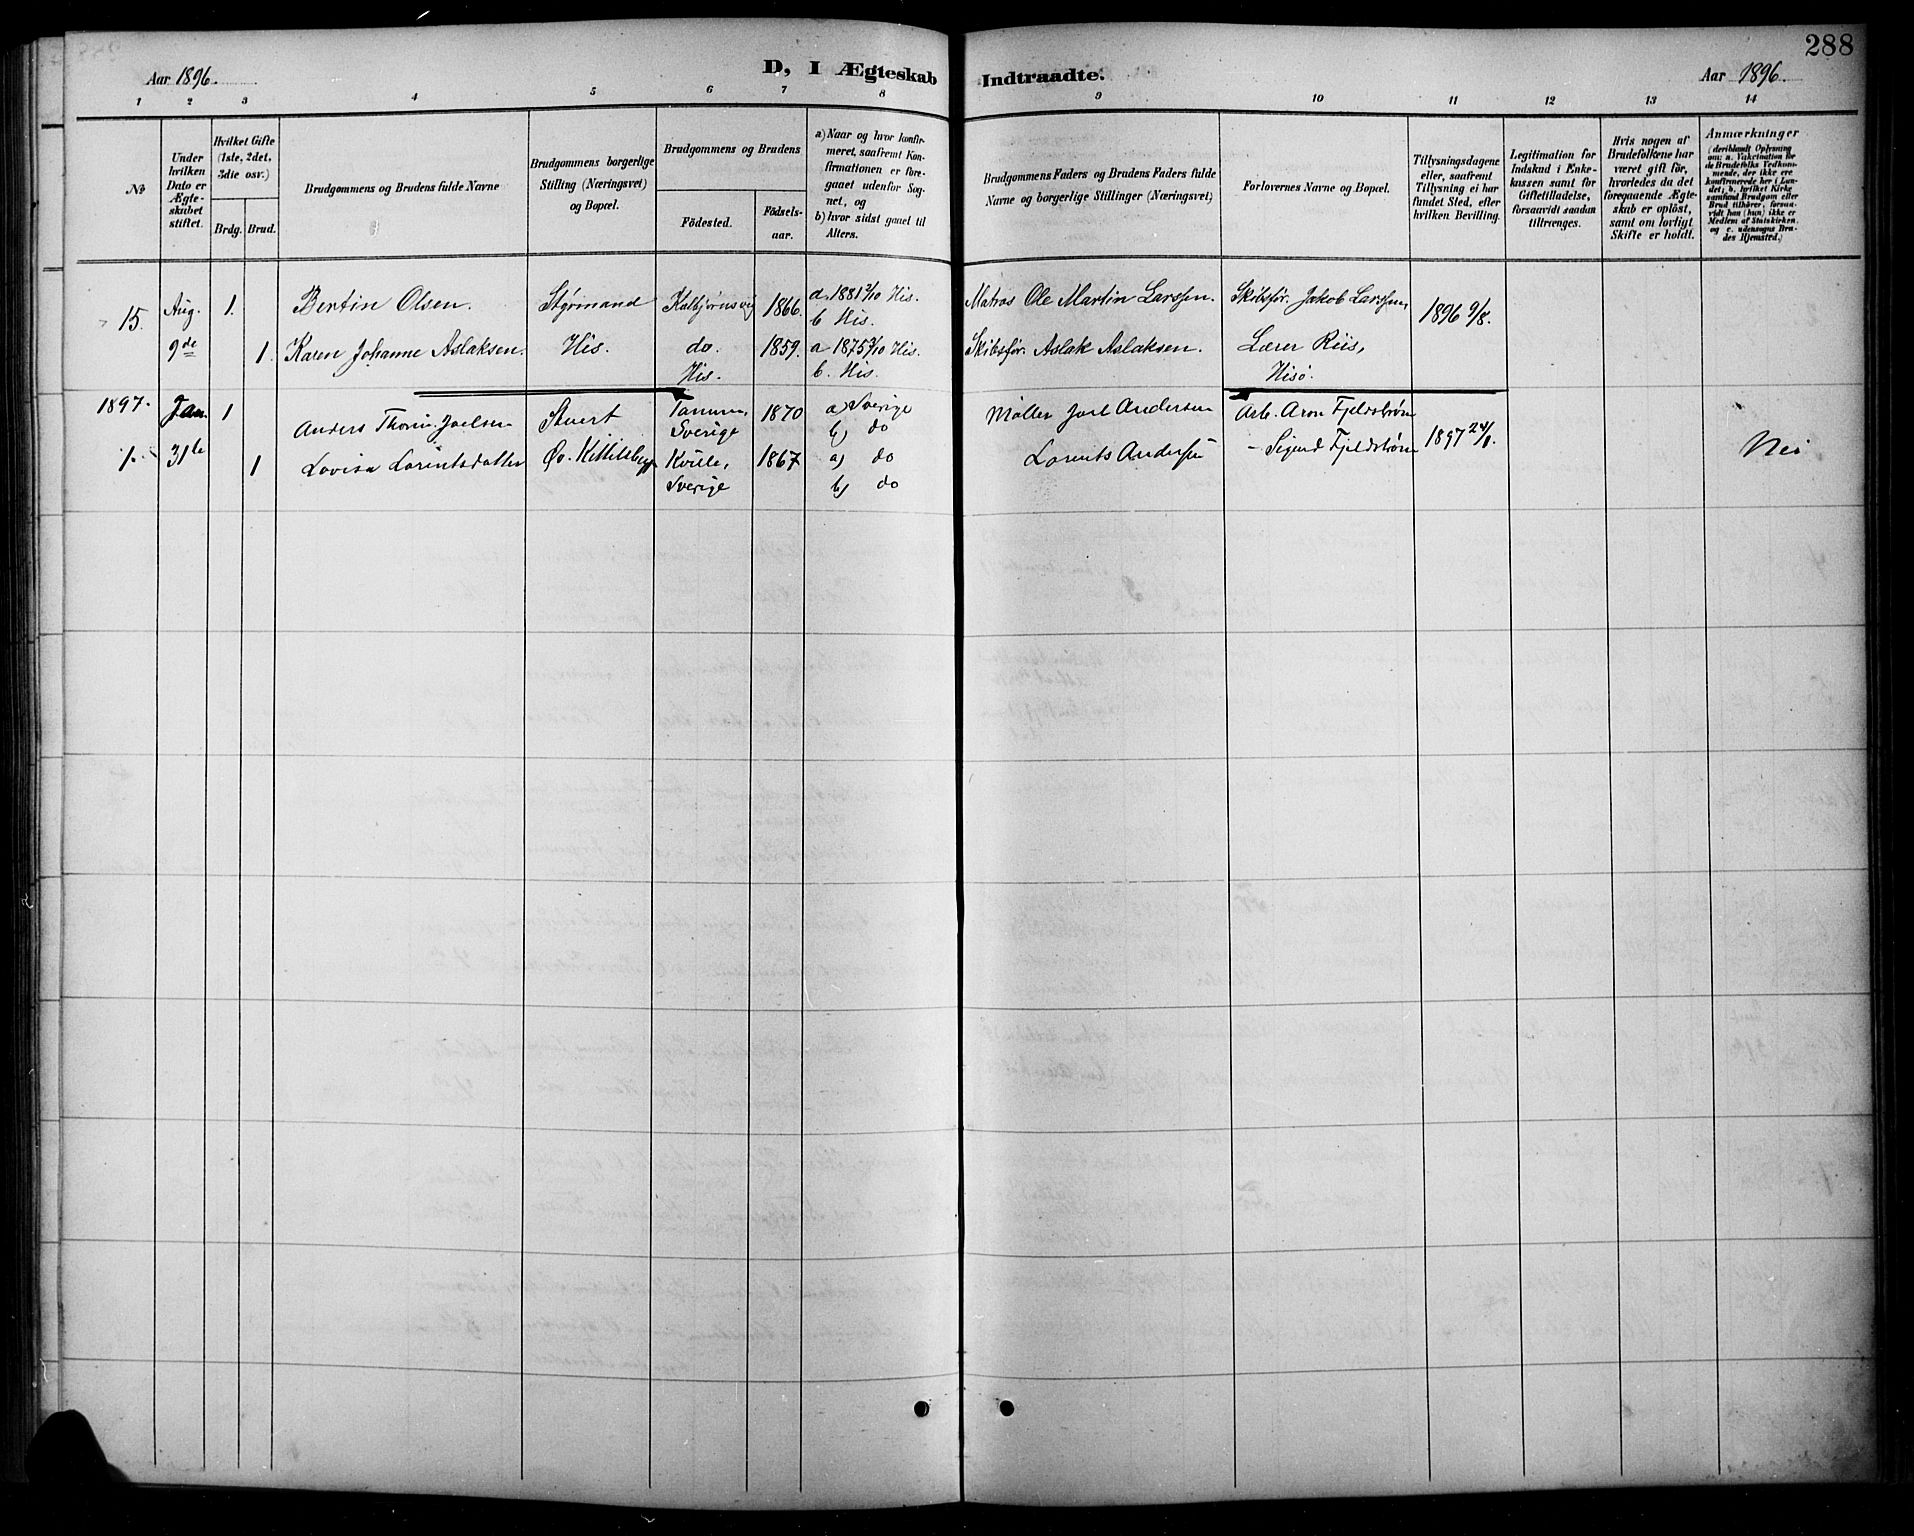 288
Aar 1896.
D, I Ægteskab Indtraadte.
Aar 1896.
1 2 3 4 5 6 7 8 9 10 11 12 13 14
No
Under hvilken Dato er Ægteskabet stiftet.
Hvilket Gifte (1ste, 2det, 3die osv.)
Brdg. Brud.
Brudgommens og Brudens fulde Navne
Brudgommens borgerlige Stilling (Næringsvei) og Bopæl.
Brudgommens og Brudens
Fødested.
Fødselsaar.
a) Naar og hvor konfirmeret, saafremt Konfirmationen er foregaaet udenfor Sognet, og
b) hvor sidst gaaet til Alters.
Brudgommens Faders og Brudens Faders fulde Navne og borgerlige Stillinger (Næringsvei)
Forlovernes Navne og Bopæl.
Tillysningsdagene eller, saafremt Tillysning ei har fundet Sted, efter hvilken Bevilling.
Legitimation for Indskud i Enkekassen samt for Giftetilladelse, forsaavidt saadan tiltrænges.
Hvis nogen af Brudefolkene har været gift før, hvorledes da det foregaaende Ægteskab er opløst, samt om lovligt Skifte er holdt.
Anmærkninger
(deriblandt Oplysning om: a. Vakcination for de Brudefolks Vedkommende, der ikke ere konfirmerede her i Landet; b. hvilket Kirkesamfund Brudgom eller Brud tilhører, forsaavidt han (hun) ikke er Medlem af Statskirken, og c. udensogns Brudes Hjemsted.)
15. Aug. 1. Bertin Olsen. Styrmand Kolbjørnsvig 1866. a. 1881 2/10 His. Matros Ole Martin Larssen. Skibsfør. Jakob Larssen, 1896 9/8.
b His.
9de 1. Karen Johanne Aslaksen. His. do. 1859. a 1875 3/10 His. Skibsfør. Aslak Aslaksen. Lærer Riis,
His. b. His. Hisø.
1897. Jan 1 Anders Thorin Joelsen Stuert Tanum, 1870 a) Sverige Møller Joel Andersen Arb. Aron Fjeldstrøm
Sverige b) do 1897 24/1.
1. 31te 1 Lovisa Lorintsdatter Øv. Kittelsbugt Kville, 1867 a) do Lorents Andersen – Sigurd Fjeldstrøm Nei
Sverige b) do